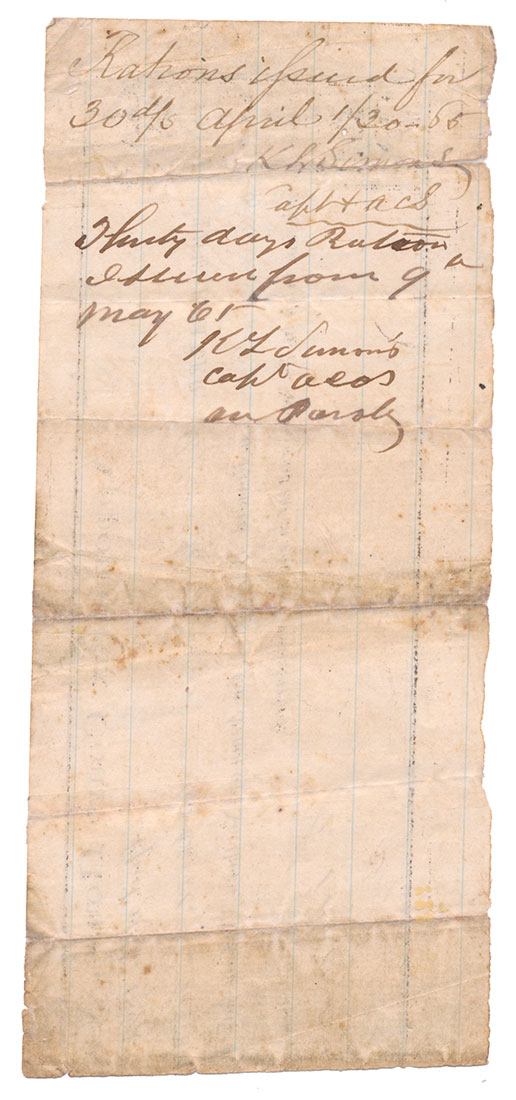 Rations issued for
30 d/s April 1/30-65
K L Simons
Capt & ACS
Thirty days Ration
Issued from 9th
May 65
K L Simons
Capt ACS
on Parole